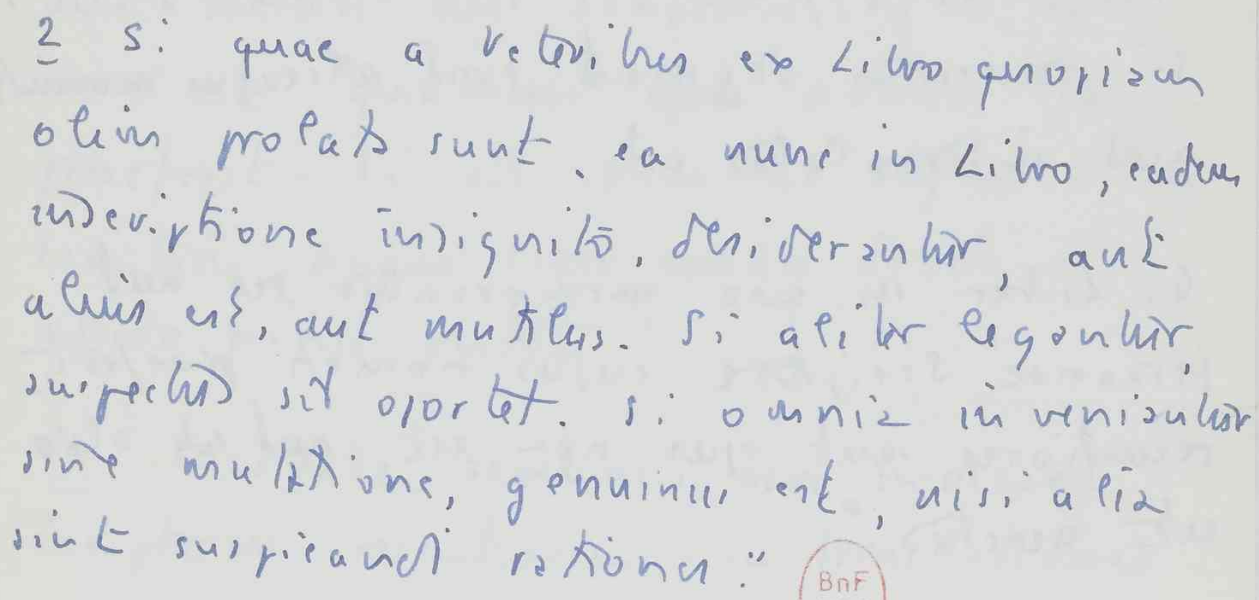 2 Si quae a veteribus ex Libro quopiam
olim prolata sunt, ea nunc in Libro, eadem
inscriptione insignito, desiderantur, aut
alius est, aut mutilus. Si aliter legantur
suspectus sit oportet. Si omnia inveniantur
sine mutatione, genuinus est, nisi alia
sint suspicandi rationes."
BnF